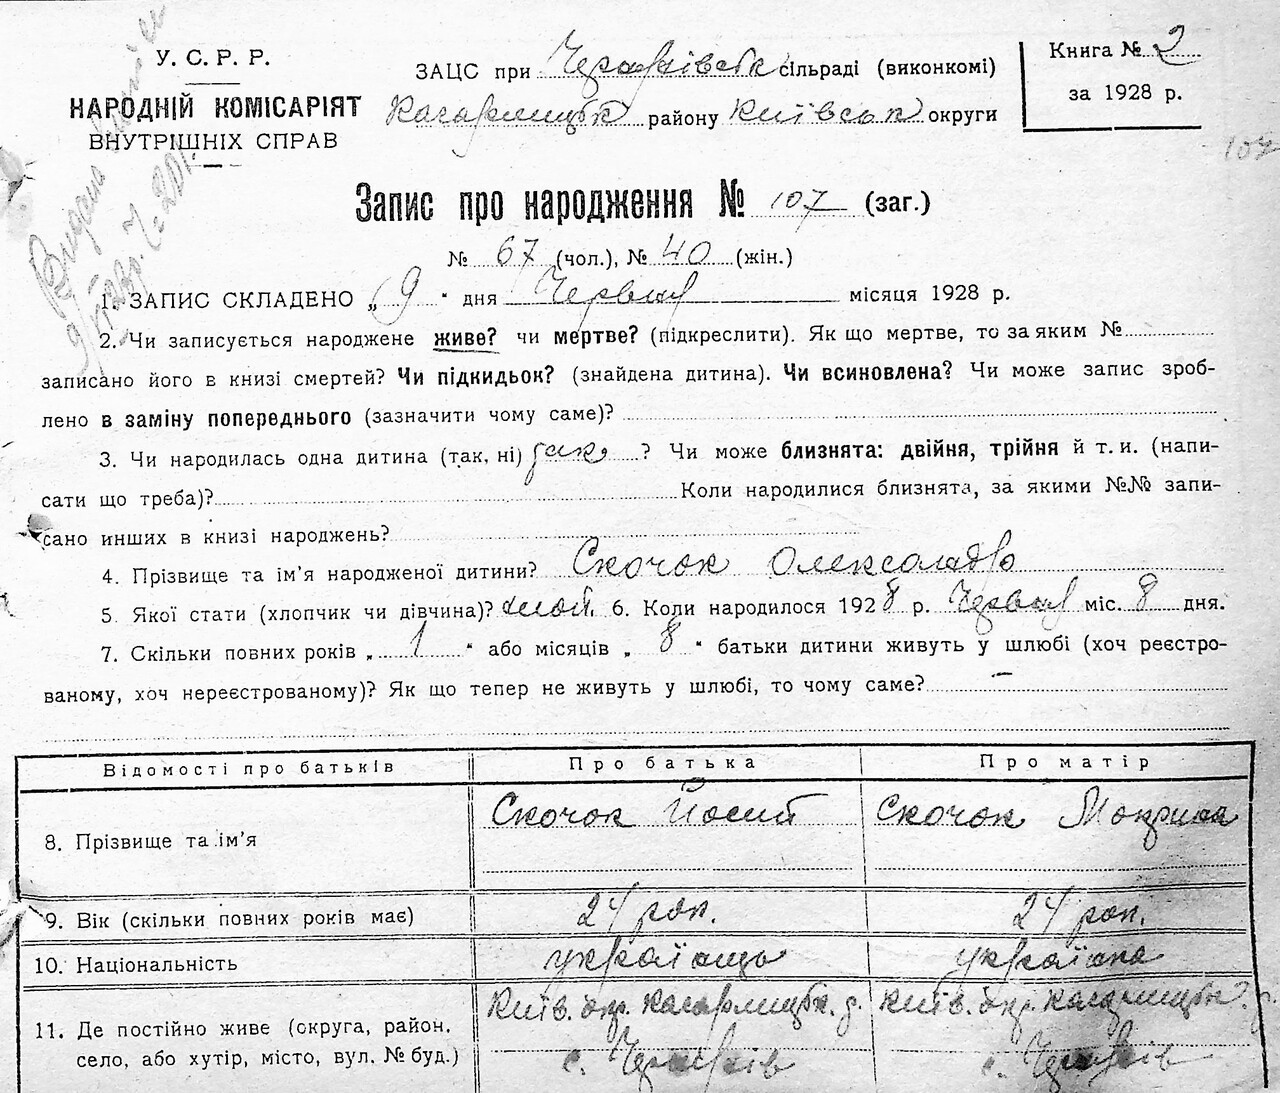 У. С. Р. Р.
НАРОДНІЙ КОМІСАРІЯТ
ВНУТРІШНІХ СПРАВ
ЗАЦС при Черняхівськ сільраді (виконкомі)
Кагарлицьк району Київськ округи
Книга № 2
за 1928 р.
107
Видано
Запис про народження № 107 (заг.)
№ 67 (чол.), № 40 (жін.)
1. ЗАПИС СКЛАДЕНО „ 9 " дня Червня місяця 1928 р.
2. Чи записується народжене живе? чи мертве? (підкреслити). Як що мертве, то за яким №
записано його в книзі смертей? Чи підкидьок? (знайдена дитина). Чи всиновлена? Чи може запис зроб-
лено в заміну попереднього (зазначити чому саме)?
3. Чи народилась одна дитина (так, ні) так ? Чи може близнята: двійня, трійня й т. и. (напи-
сати що треба)? Коли народилися близнята, за якими №№ запи-
сано инших в книзі народжень?
4. Прізвище та ім'я народженої дитини? Скочок Олександро
5. Якої стати (хлопчик чи дівчина)? 6. Коли народилося 1928 р. Червня міс. 8 дня.
7. Скільки повних років „ 1 " або місяців „ 8 " батьки дитини живуть у шлюбі (хоч реєстро-
ваному, хоч нереєстрованому)? Як що тепер не живуть у шлюбі, то чому саме? —
Відомості про батьків Про батька Про матір
8. Прізвище та ім'я Скочок Йосип Скочок Мокрина
9. Вік (скільки повних років має) 24 рок. 24 рок.
10. Національність українець українка
11. Де постійно живе (округа, район, Київ. окр. Кагарлицьк. р. Київ. окр. Кагарлицьк. р.
село, або хутір, місто, вул. № буд.) с. Черняхів с. Черняхів